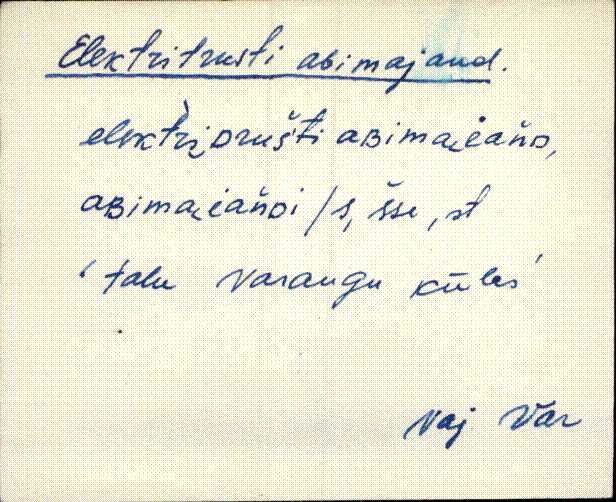 Elektritrusti abimajand.
elektriᴅrušti aʙimai̯ɛaňᴅ,
aʙimai̯ɛaňᴅi /s, šse, st
‘talu Varangu külas’
VaJ Var